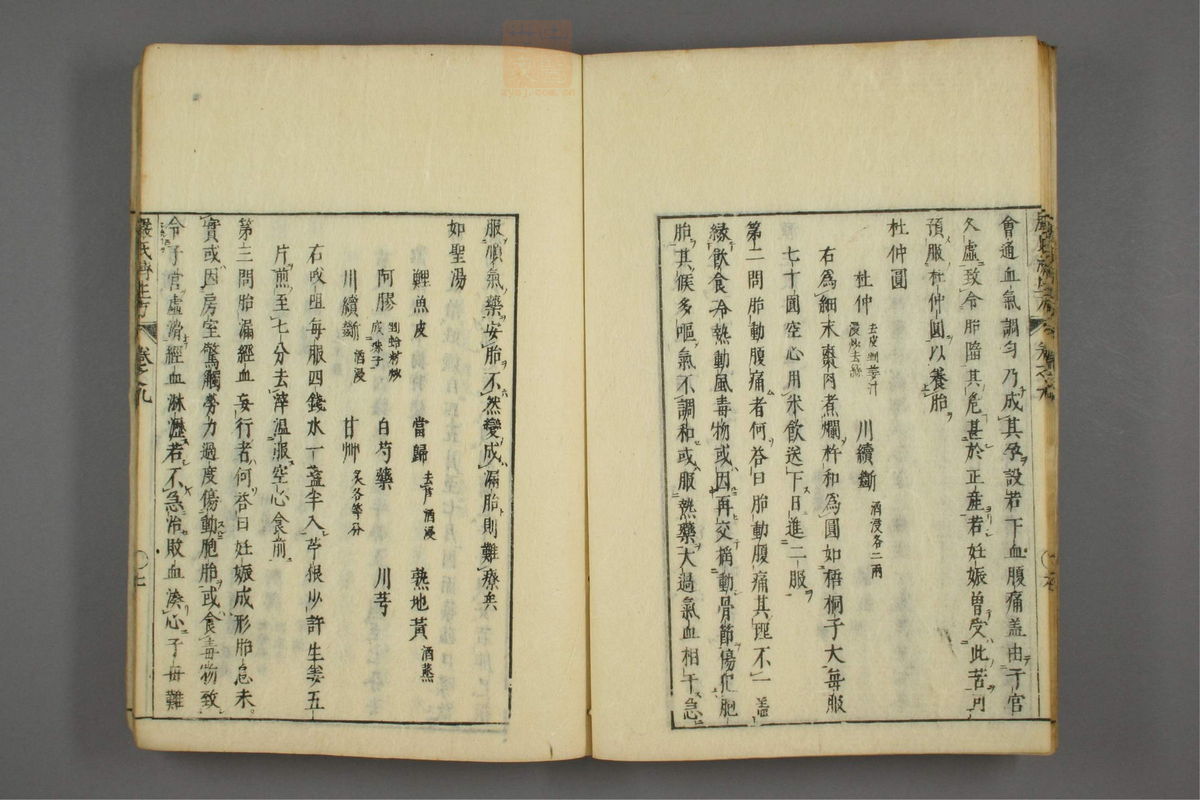 會通血氣調勻乃成其孕設若下血腹痛盖由子宮
久虛致令胎墮其危甚於正産若妊娠曾受此苦可
預服杜仲圓以養胎
杜仲圓
杜仲 去皮剉薑汁浸炒去絲 川續斷 酒浸各二兩
右為細末棗肉煮爛杵和為圓如梧桐子大每服
七十圓空心用米飲送下日進二服
第二問胎動腹痛者何答曰胎動腹痛其理不一盖
緣飲食冷熱動風毒物或因再交揺動骨節傷犯胞
胎其候多嘔氣不調和或服熱藥太過氣血相干急
服順氣藥安胎不然變成漏胎則難療矣
如聖湯
鯉魚皮 當歸 去芦酒浸 熟地黃 酒蒸
阿膠 剉蛤粉炒成珠子 白芍藥 川芎
川續斷 酒浸 甘艸 炙各等分
右㕮咀每服四錢水一盞半入苧根少許生姜五
片煎至七分去滓溫服空心食前
第三問胎漏經血妄行者何答曰妊娠成形胎息未
實或因房室驚觸勞力過度傷動胞胎或食毒物致
令子宮虛滑經血淋瀝若不急治敗血湊心子母難
嚴氏濟生方 卷之九